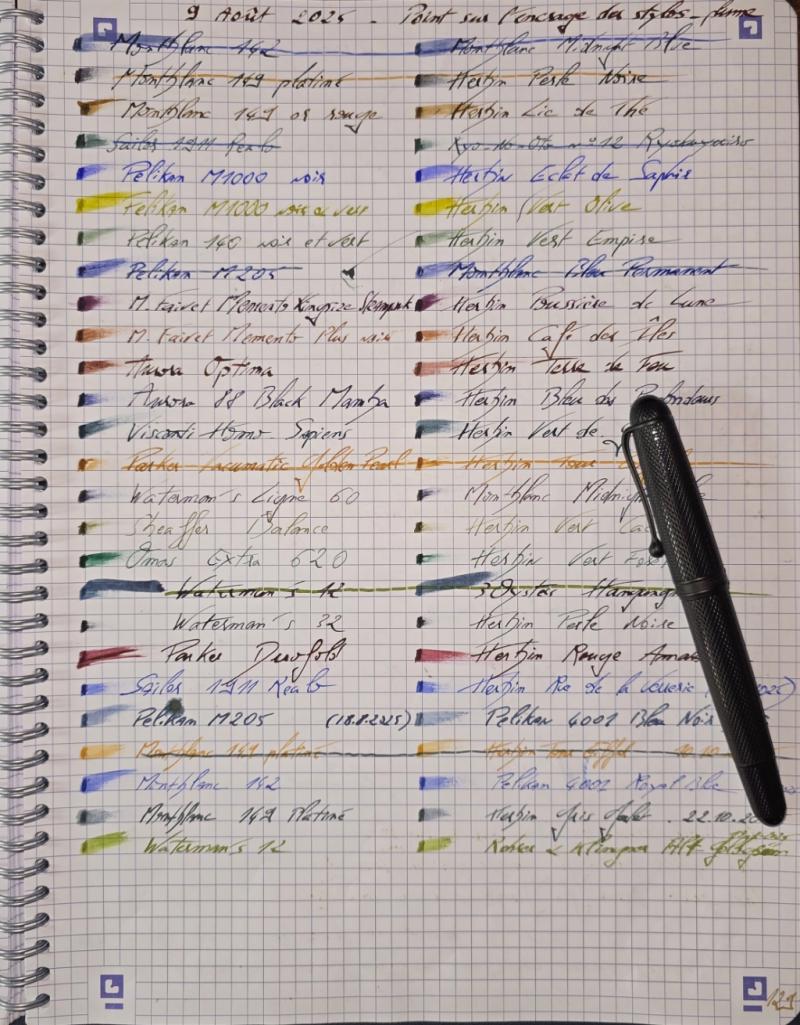 9 Août 2025 - Point sur l'encrage des stylos-plume
Montblanc 142 Montblanc Midnight Blue
Montblanc 149 platine Herbin Perle Noire
Montblanc 149 or rouge Herbin Lie de Thé
Sailor 1911 Realo Kyo-No-Oto n°12
Pelikan M1000 noir Herbin Eclat de Saphir
Pelikan M1000 noir et vert Herbin Vert Olive
Pelikan 140 noir et vert Herbin Vert Empire
Pelikan M205 Montblanc Bleu Permanent
M. Faivet Memento Kingsize Herbin Poussière de Lune
M. Faivet Memento Plus noir Herbin Café des Îles
Aurora Optima Herbin Terre de Feu
Aurora 88 Black Mamba Herbin Bleu des
Visconti Homo Sapiens Herbin Vert de
Parker Vacumatic Golden Pearl Herbin
Waterman's Ligne 60 Montblanc
Sheaffer Balance Herbin Vert
Omas Extra 620 Herbin Vert
Waterman's 12 3 Oyster
Waterman's 32 Herbin Perle Noire
Parker Duofold Herbin Rouge
Sailor 1911 Realo Herbin Rue de la
Pelikan M205 (18.8.2025) Pelikan 4001 Bleu Noir
Montblanc 149 platine Herbin Tour Eiffel
Montblanc 142 Pelikan 4001 Royal
Montblanc 149 Platine Herbin Gris 22.10
Waterman's 12 Rohrer & Klingner Alt Goldgrün
129